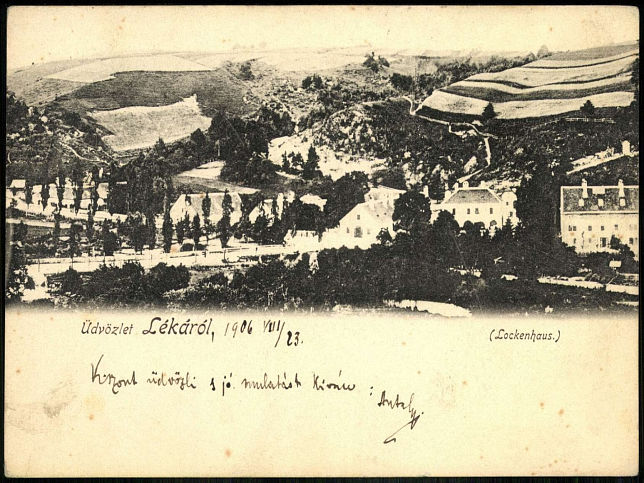 Üdvözlet Lékáról, 1906 VIII/23.
(Lockenhaus.)
Viszont üdvözli s jó mulatást kíván:
Antal